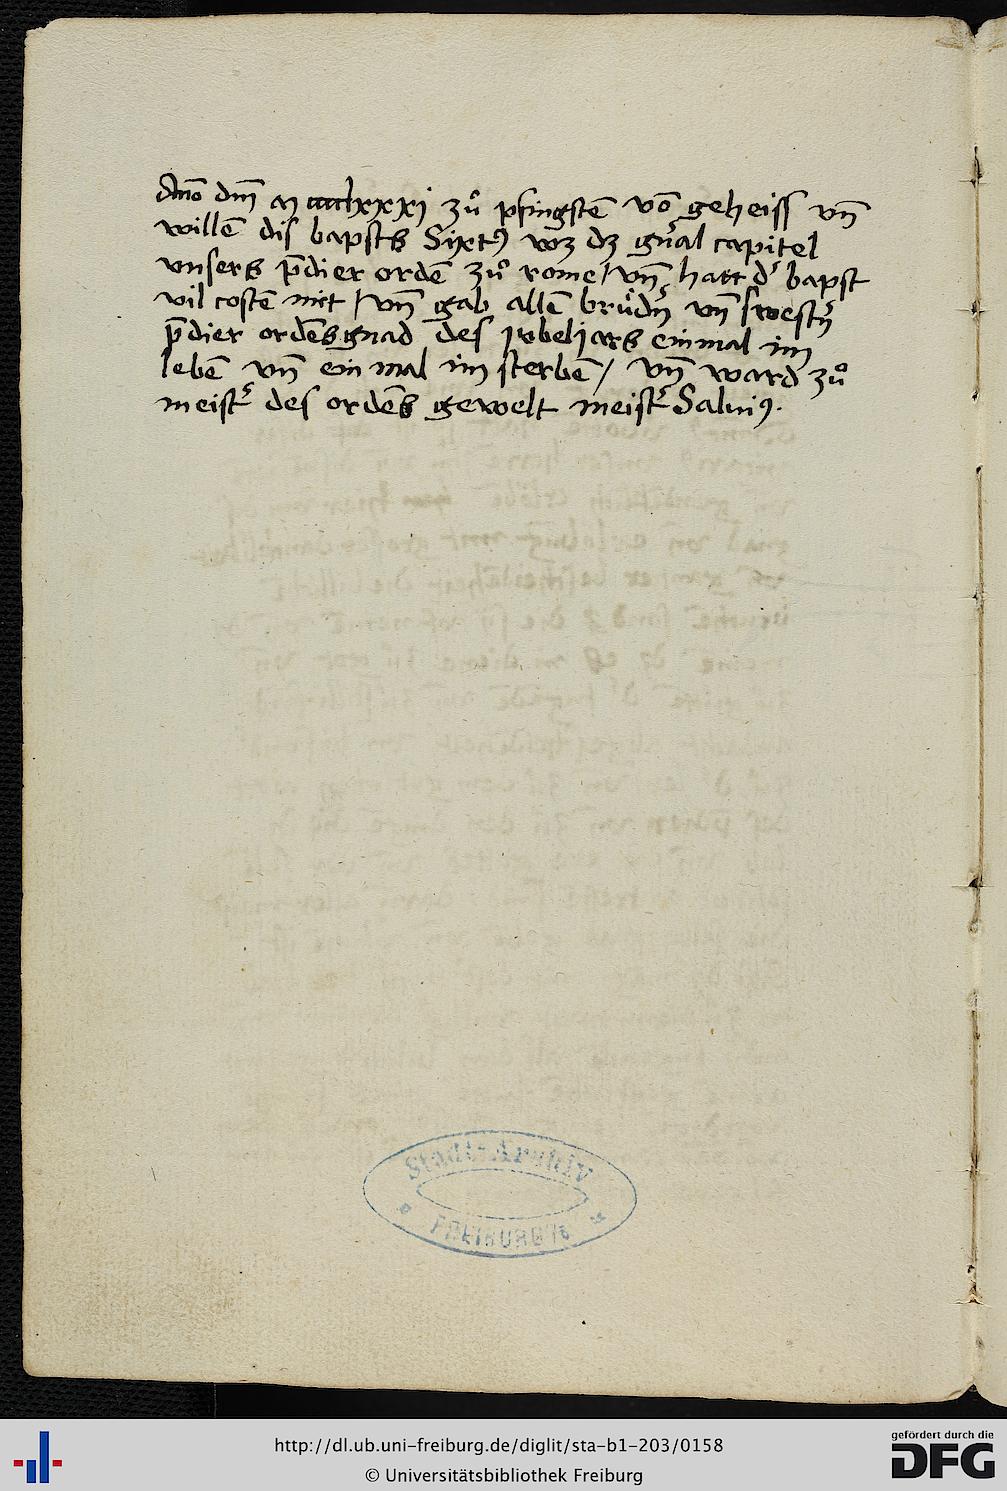 Anno dm̄ m cccclxxxi zů pfingstē vō geheiss vn̄
willē dis bapsts Sixtꝰ wz dz gn̄al capitel
vnsers p̄dier ordē zů rome / vn̄ hatt dˀ bapst
vil costē mit / vn̄ gab allē brůdn̄ vn̄ swestn̄
p̄dier ordēs gnad des jubeljars ein mal im
lebē vn̄ ein mal im sterbē / vn̄ ward zů
meistˀ des ordēs gewelt meistˀ Saluiꝰ.
Stadt-Archiv
FREIBURG i/B
http://dl.ub.uni-freiburg.de/diglit/sta-b1-203/0158
© Universitätsbibliothek Freiburg
gefördert durch die
DFG